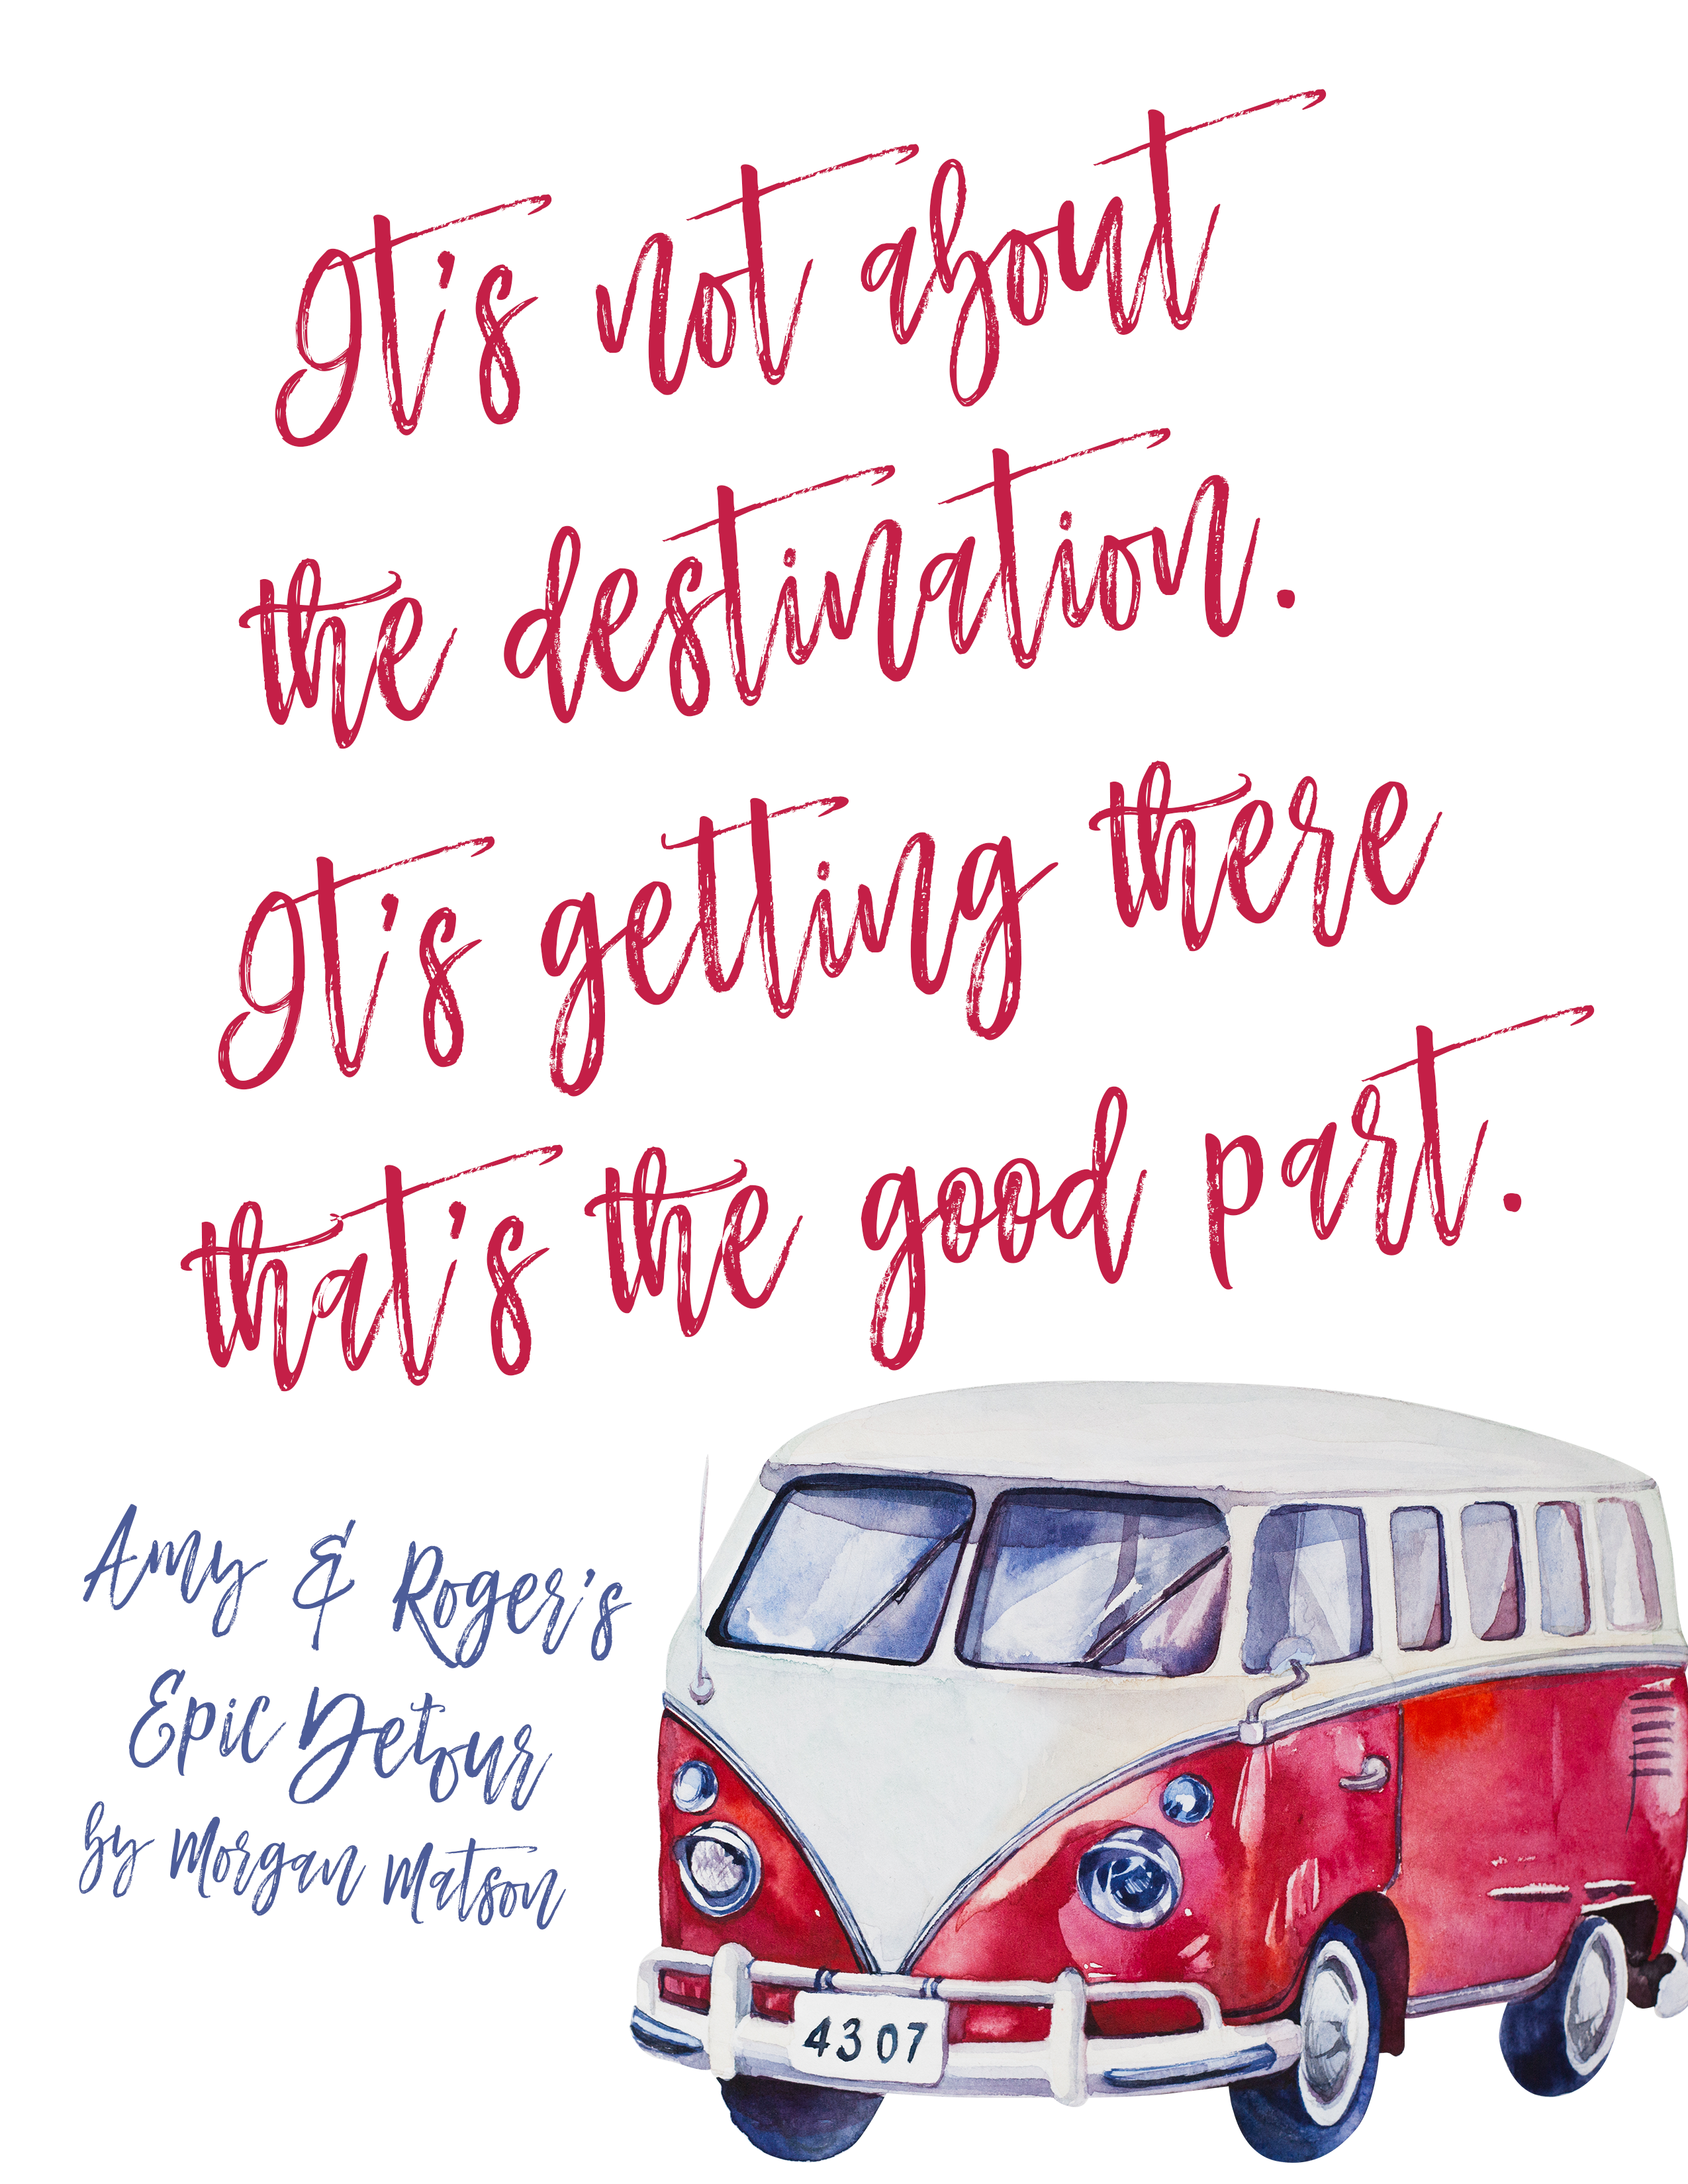 It's not about
the destination.
It's getting there
that's the good part.
Amy & Roger's
Epic Detour
by Morgan Matson
4307